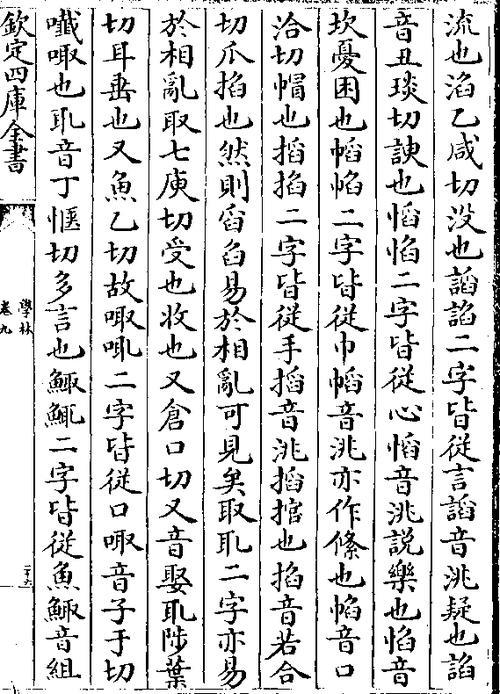 流也淊乙咸切没也謟諂二字皆從言謟音洮疑也諂
音丑琰切諛也慆惂二字皆從心慆音洮說樂也惂音
坎憂困也幍㡊二字皆從巾幍音洮亦作絛也㡊音口
洽切帽也搯掐二字皆從手搯音洮搯掊也掐音若合
切爪掐也然則舀臽易於相亂可見矣取耴二字亦易
於相亂取七庾切受也收也又倉口切又音娶耴陟葉
切耳垂也又魚乙切故㖩㖏二字皆從口㖩音子于切
囐㖩也耴音丁愜切多言也鯫䱒二字皆從魚鯫音組
欽定四庫全書
學林
卷九
二十六